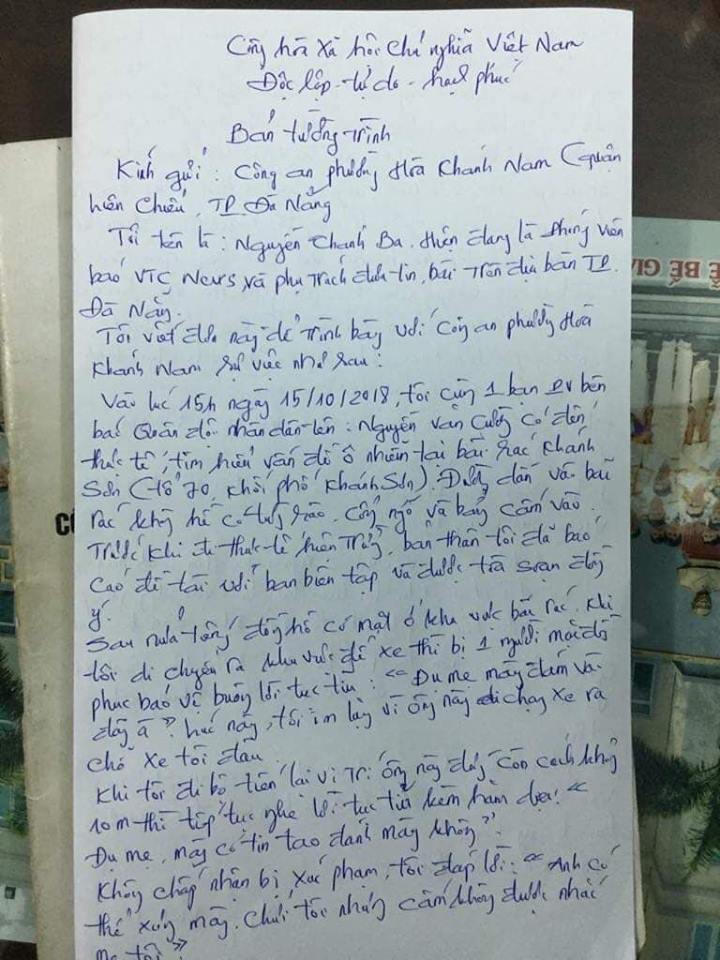 Cộng hòa xã hội chủ nghĩa Việt Nam
Độc lập - tự do - hạnh phúc
Bản tường trình
Kính gửi: Công an phường Hòa Khánh Nam (quận
Liên Chiểu, TP. Đà Nẵng
Tôi tên là: Nguyễn Chánh Ba. Hiện đang là phóng viên
báo VTC News, và phụ trách đưa tin, bài trên địa bàn TP.
Đà Nẵng.
Tôi viết đơn này để trình bày với Công an phường Hòa
Khánh Nam sự việc như sau:
Vào lúc 15h ngày 15/10/2018, tôi cùng 1 bạn PV bên
báo Quân đội nhân dân tên: Nguyễn Văn Cường có đến
thực tế, tìm hiểu vấn đề ô nhiễm tại bãi rác Khánh
Sơn (tổ 70, khối phố Khánh Sơn). Đường dẫn vào bãi
rác không hề có tường rào, cổng ngõ và bảng cấm vào.
Trước khi đi thực tế hiện trường, bản thân tôi đã báo
cáo đề tài với ban biên tập và được tòa soạn đồng
ý.
Sau nửa tiếng đồng hồ có mặt ở khu vực bãi rác, khi
tôi di chuyển ra khu vực để xe thì bị 1 người mặc đồ
phục bảo vệ buông lời tục tĩu: "Đụ mẹ mày dám vào
đây à". Lúc này, tôi im lặng vì ông này chạy xe ra
chỗ xe tôi đậu.
Khi tôi đi bộ tiến lại vị trí ông này đứng còn cách khoảng
10m thì tiếp tục nghe lời tục tĩu kèm hăm dọa: "
Đụ mẹ, mày có tin tao đánh mày không".
Không chấp nhận bị xúc phạm, tôi đáp lời: "Anh có
thể xưng mày, chửi tôi nhưng cấm không được nhắc
mẹ tôi"
BẾ GI